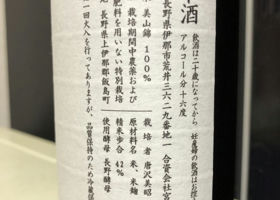 酒
飲酒は二十歳になってから、妊産婦の飲酒はお控え
アルコール分十六度
長野県伊那市荒井三六二九番地一 合資会社宮
米 美山錦 100%
栽培期間中農薬および
肥料を用いない特別栽培
地 長野県上伊那郡飯島町
栽培者 唐沢美昭
原材料名 米、米麹
精米歩合 42%
使用酵母 長野酵母
一回火入を行ってありますが、品質保持のため冷蔵保